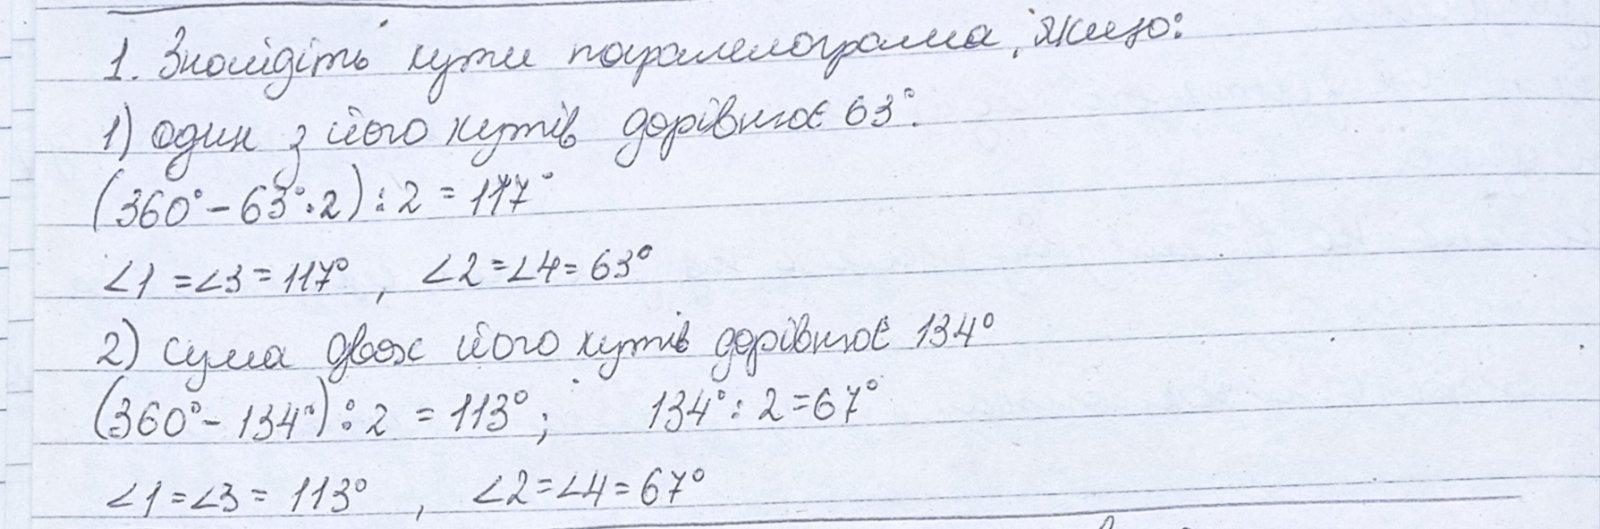 1. Знайдіть кути паралелограма, якщо:
1) один з його кутів дорівнює 63°.
(360° - 63°·2) : 2 = 117°
∠1 = ∠3 = 117°, ∠2 = ∠4 = 63°
2) сума двох його кутів дорівнює 134°
(360° - 134°) : 2 = 113°; 134° : 2 = 67°
∠1 = ∠3 = 113°, ∠2 = ∠4 = 67°